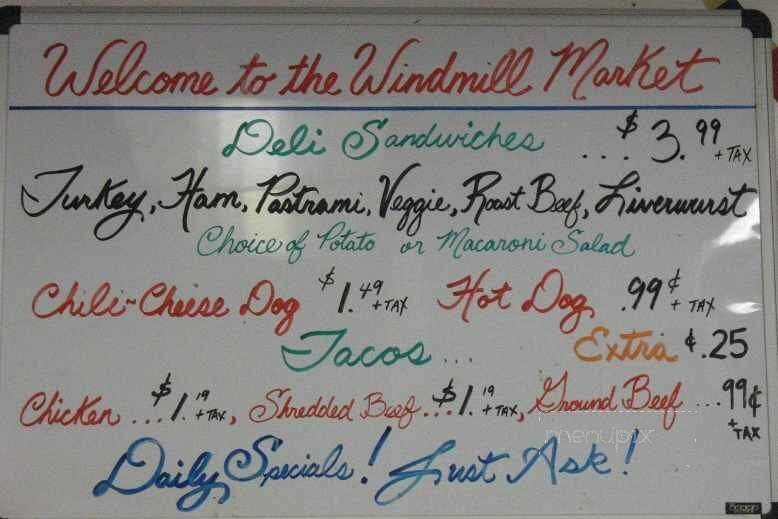 Welcome to the Windmill Market
Deli Sandwiches ... $3.99 + TAX
Turkey, Ham, Pastrami, Veggie, Roast Beef, Liverwurst
Choice of Potato or Macaroni Salad
Chili-Cheese Dog $1.49 + TAX Hot Dog .99¢ + TAX
Tacos ... Extra ¢.25
Chicken ... $1.19 + TAX, Shredded Beef ... $1.19 + TAX, Ground Beef ... .99¢ + TAX
menupix
Daily Specials! Just Ask!